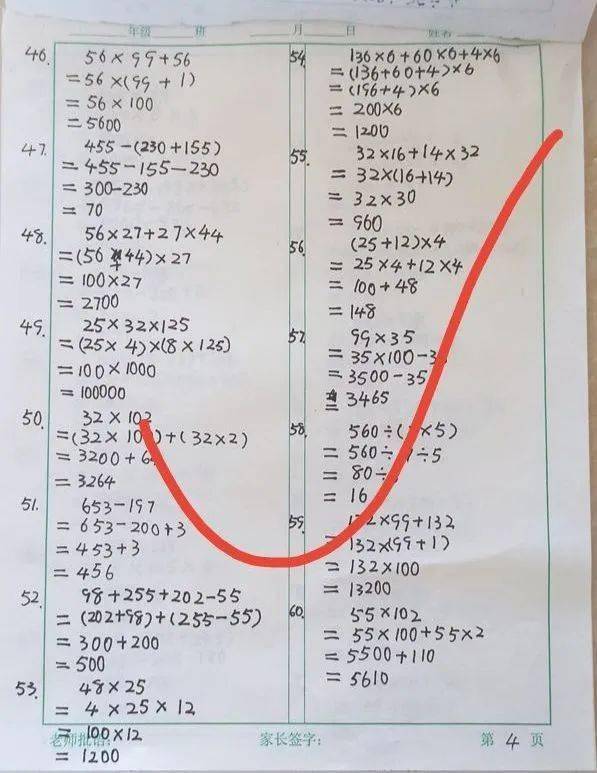 年级 班 月 日 姓名
46. 56×99+56
=56×(99+1)
=56×100
=5600
47. 455-(230+155)
=455-155-230
=300-230
=70
48. 56×27+27×44
=(56+44)×27
=100×27
=2700
49. 25×32×125
=(25×4)×(8×125)
=100×1000
=100000
50. 32×102
=(32×10)+(32×2)
=3200+6
=3264
51. 653-197
=653-200+3
=453+3
=456
52. 98+255+202-55
=(202+98)+(255-55)
=300+200
=500
53. 48×25
=4×25×12
=100×12
=1200
54. 136×6+60×6+4×6
=(136+60+4)×6
=(196+4)×6
=200×6
=1200
55. 32×16+14×32
=32×(16+14)
=32×30
=960
56. (25+12)×4
=25×4+12×4
=100+48
=148
57. 99×35
=35×100-3
=3500-35
=3465
58. 560÷(×5)
=560÷÷5
=80÷
=16
59. 132×99+132
=132×(99+1)
=132×100
=13200
60. 55×102
=55×100+55×2
=5500+110
=5610
老师批语: 家长签字: 第 4 页